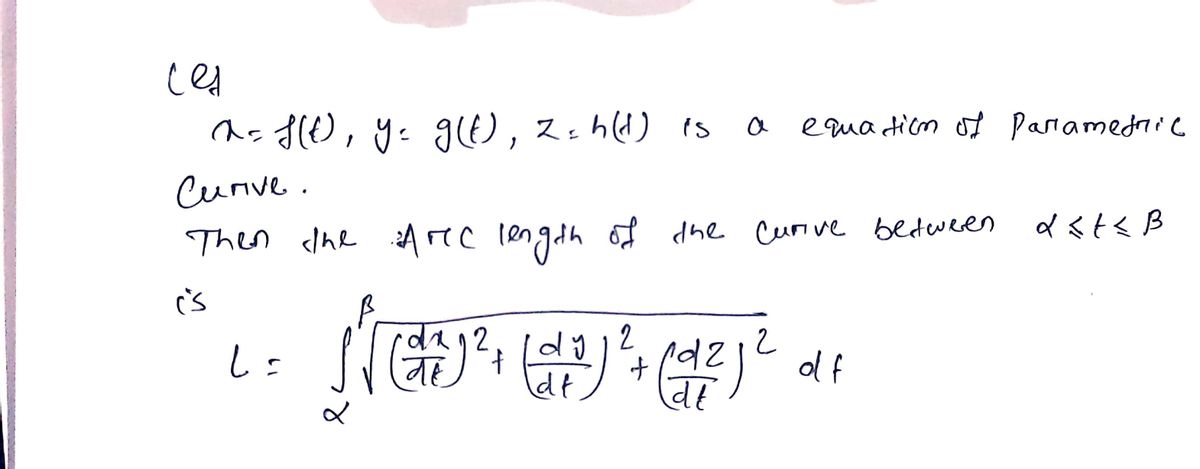 Let
x = f(t), y = g(t), z = h(t) is a equation of Parametric
Curve.
Then the Arc length of the curve between α ≤ t ≤ β
is
L = ∫_α^β √((dx/dt)² + (dy/dt)² + (dz/dt)²) dt